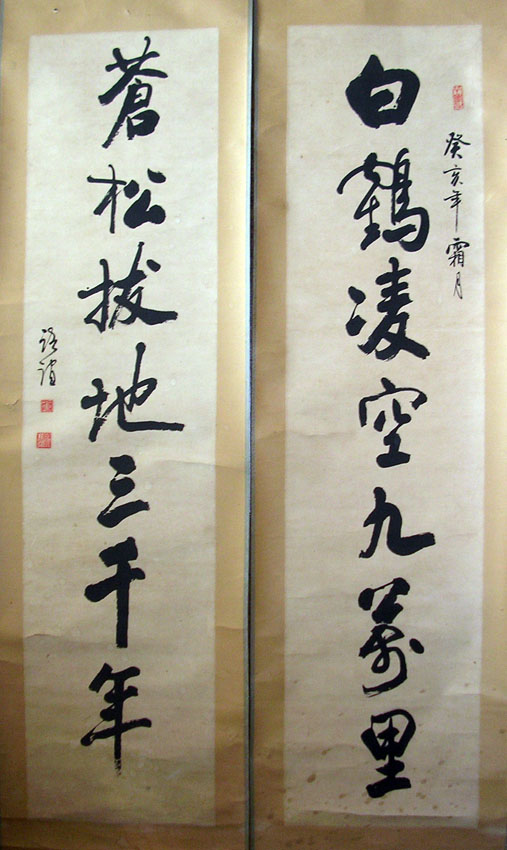 白鶴凌空九萬里
癸亥年霜月
蒼松拔地三千年